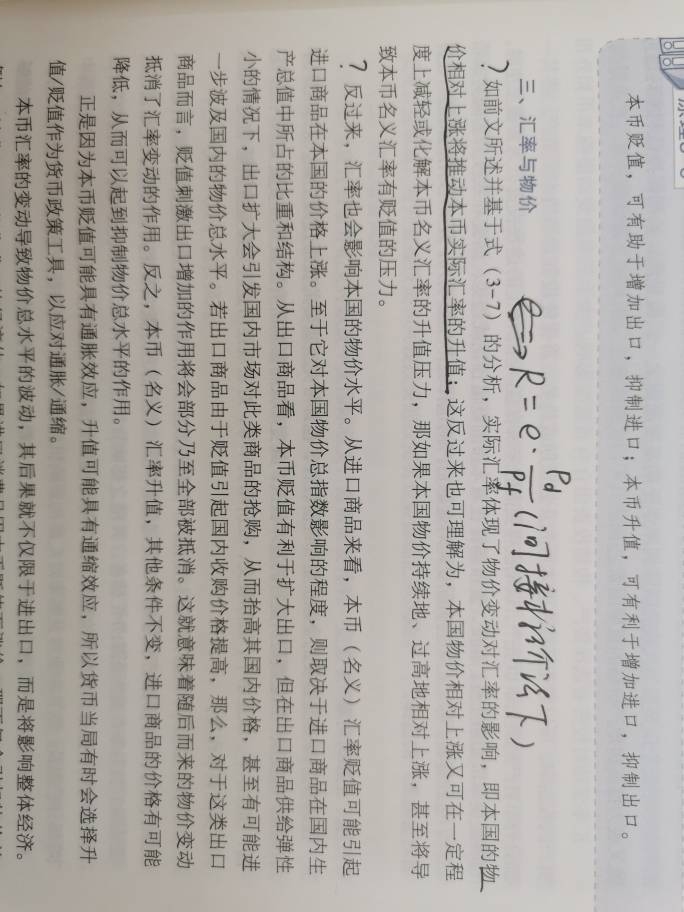 本币贬值，可有助于增加出口，抑制进口；本币升值，可有利于增加进口，抑制出口。
三、汇率与物价
R = e · Pd/Pf (间接标价法下)
? 如前文所述并基于式（3-7）的分析，实际汇率体现了物价变动对汇率的影响，即本国的物
价相对上涨将推动本币实际汇率的升值；这反过来也可理解为，本国物价相对上涨又可在一定程
度上减轻或化解本币名义汇率的升值压力，那如果本国物价持续地、过高地相对上涨，甚至将导
致本币名义汇率有贬值的压力。
? 反过来，汇率也会影响本国的物价水平。从进口商品来看，本币（名义）汇率贬值可能引起
进口商品在本国的价格上涨。至于它对本国物价总指数影响的程度，则取决于进口商品在国内生
产总值中所占的比重和结构。从出口商品看，本币贬值有利于扩大出口，但在出口商品供给弹性
小的情况下，出口扩大会引发国内市场对此类商品的抢购，从而抬高其国内价格，甚至有可能进
一步波及国内的物价总水平。若出口商品由于贬值引起国内收购价格提高，那么，对于这类出口
商品而言，贬值刺激出口增加的作用将会部分乃至全部被抵消。这就意味着随后而来的物价变动
抵消了汇率变动的作用。反之，本币（名义）汇率升值，其他条件不变，进口商品的价格有可能
降低，从而可以起到抑制物价总水平的作用。
正是因为本币贬值可能具有通胀效应，升值可能具有通缩效应，所以货币当局有时会选择升
值/贬值作为货币政策工具，以应对通胀/通缩。
本币汇率的变动导致物价总水平的波动，其后果就不仅限于进出口，而是将影响整体经济。